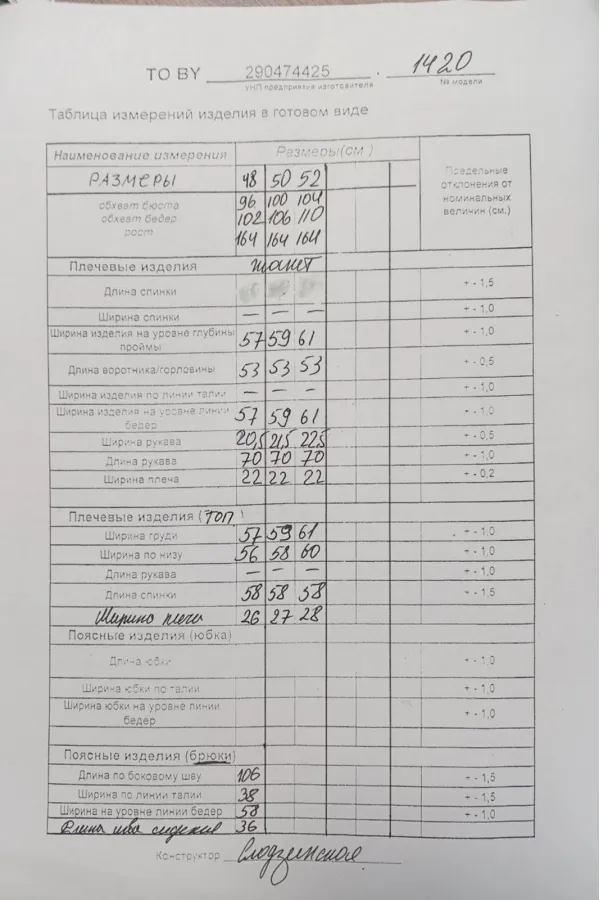 TO BY 290474425 . 1420
УНП предприятия изготовителя № модели
Таблица измерений изделия в готовом виде
Наименование измерения Размеры(см.) Предельные отклонения от номинальных величин (см.)
РАЗМЕРЫ 48 50 52
обхват бюста 96 100 104
обхват бедер 102 106 110
рост 164 164 164
Плечевые изделия жакет
Длина спинки + - 1,5
Ширина спинки — — — + - 1,0
Ширина изделия на уровне глубины проймы 57 59 61 + - 1,0
Длина воротника/горловины 53 53 53 + - 0,5
Ширина изделия по линии талии — — — + - 1,0
Ширина изделия на уровне линии бедер 57 59 61 + - 1,0
Ширина рукава 20,5 21,5 22,5 + - 0,5
Длина рукава 70 70 70 + - 1,0
Ширина плеча 22 22 22 + - 0,2
Плечевые изделия (ТОП)
Ширина груди 57 59 61 . + - 1,0
Ширина по низу 56 58 60 + - 1,0
Длина рукава — — — + - 1,0
Длина спинки 58 58 58 + - 1,5
Ширина плеча 26 27 28
Поясные изделия (юбка)
Длина юбки + - 1,0
Ширина юбки по талии + - 1,0
Ширина юбки на уровне линии бедер + - 1,0
Поясные изделия (брюки)
Длина по боковому шву 106 + - 1,5
Ширина по линии талии 38 + - 1,5
Ширина на уровне линии бедер 58 + - 1,0
Длина шва сидения 36
Конструктор Слодзинская